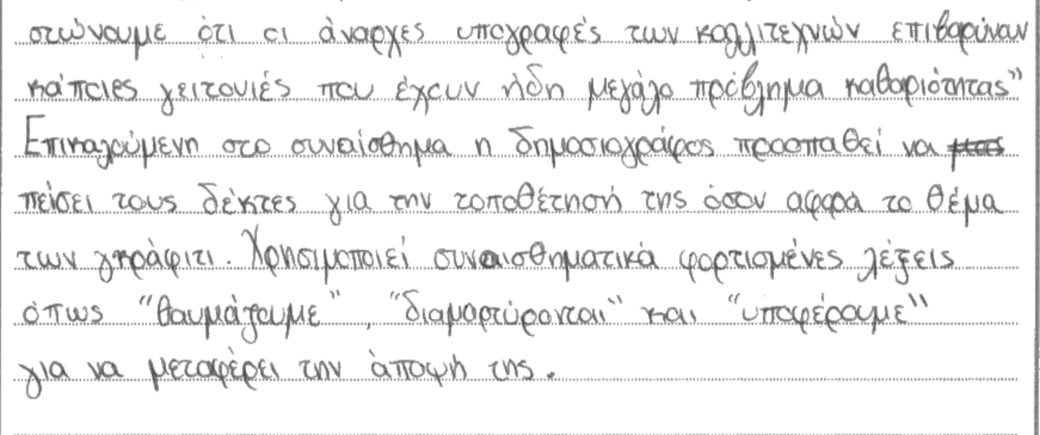 στώνουμε ότι οι άναρχες υπογραφές των καλλιτεχνών επιβαρύναν
κάποιες γειτονιές που έχουν ήδη μεγάλο πρόβλημα καθαριότητας"
Επικαλούμενη στο συναίσθημα η δημοσιογράφος προσπαθεί να
πείσει τους δέκτες για την τοποθέτησή της όσον αφορά το θέμα
των γκράφιτι. Χρησιμοποιεί συναισθηματικά φορτισμένες λέξεις
όπως "θαυμάζουμε", "διαμαρτύρονται" και "υποφέρουμε"
για να μεταφέρει την άποψή της.